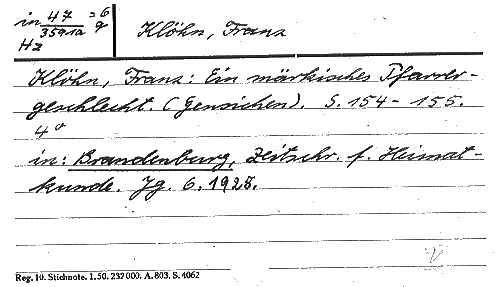 in 47 = 6
3591a 9
Hz
Klöhn, Franz
Klöhn, Franz: Ein märkisches Pfarrer-
geschlecht. (Gensichen). S. 154-155.
4°
in: Brandenburg, Zeitschr. f. Heimat-
kunde. Jg. 6. 1928.
Reg. 10. Stichnote. 1.50. 232000. A. 803. S. 4062